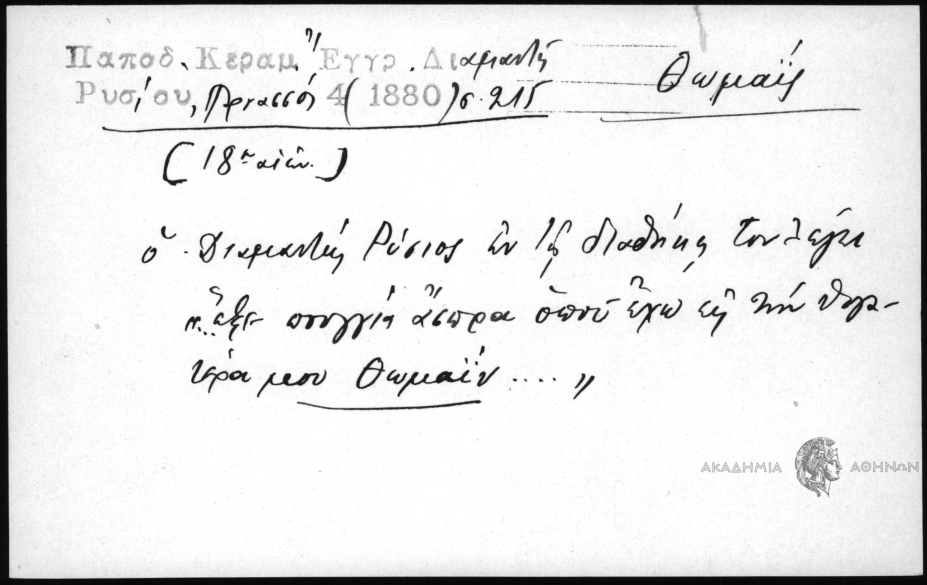 Παποδ. Κεραμ. ἢ Ἔγγρ. Διαμαντῆ
Ρυσίου, Παρνασσός 4 (1880) σ. 215
Θωμαΐς
[18ος αἰών.]
ὁ Διαμαντῆς Ρύσιος ἐν τῇ διαθήκῃ του λέγει
πουγγιά ἄσπρα ὁποῦ ἔχω εἰς τὴν θυγα-
τέρα μου Θωμαΐν .... „
ΑΚΑΔΗΜΙΑ ΑΘΗΝΩΝ